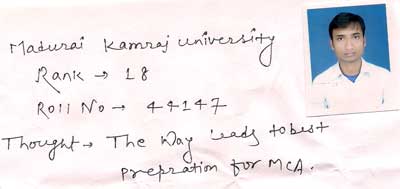 Madurai Kamraj University
Rank → 18
Roll No → 44147
Thought → The Way leads to best
prepration for MCA.